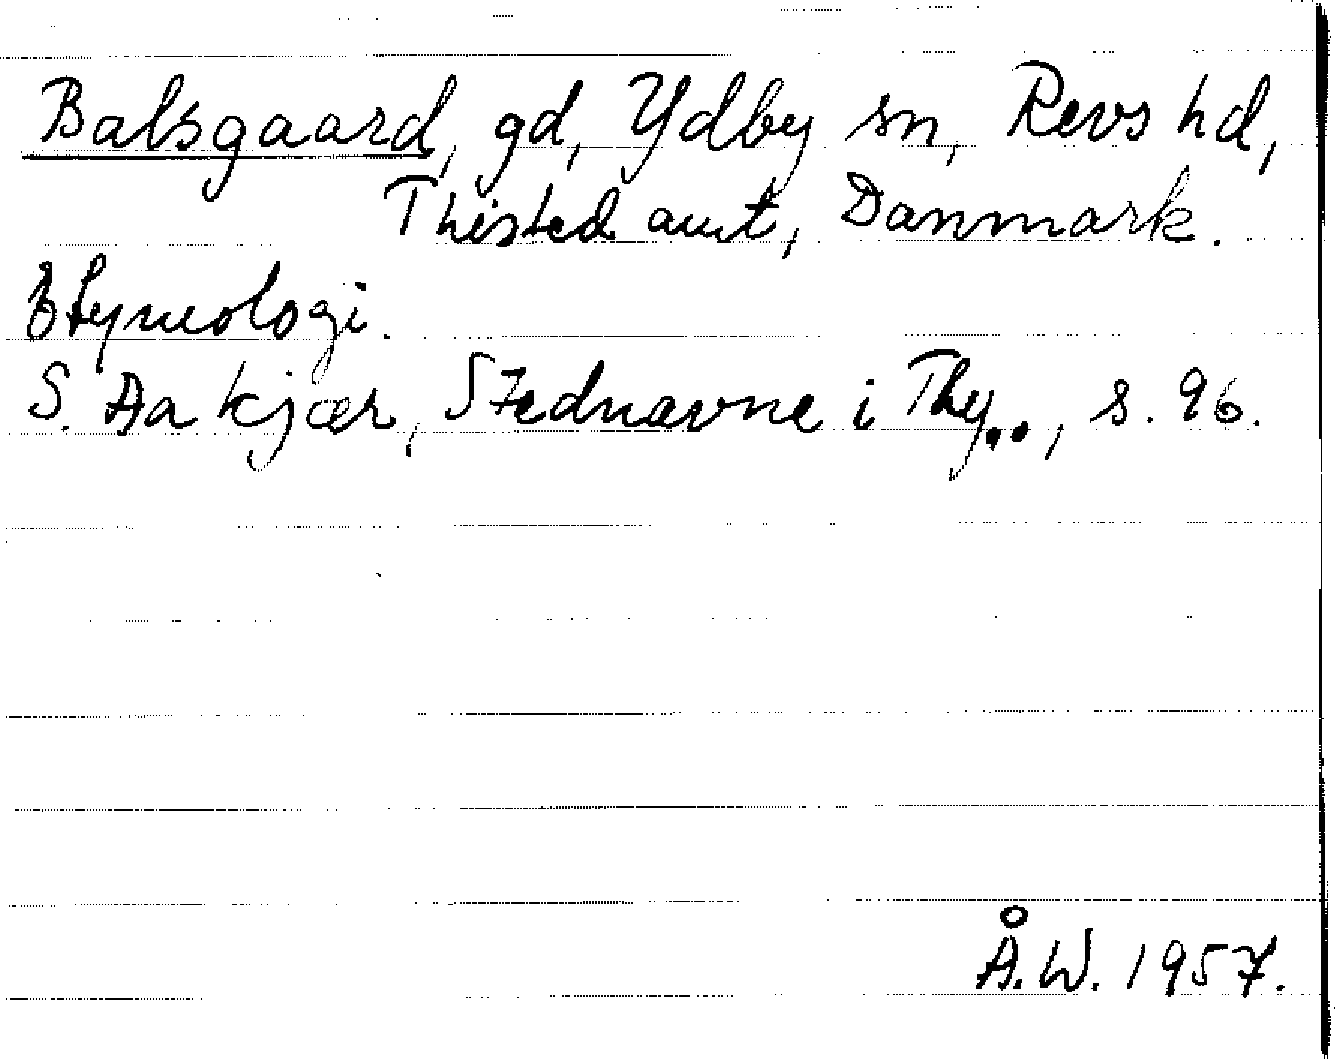 Balsgaard, gd, Ydby sn, Revs hd,
Thisted amt, Danmark.
Etymologi.
S. Aakjær, Stednavne i Thy.., s. 96.
Å.W. 1957.